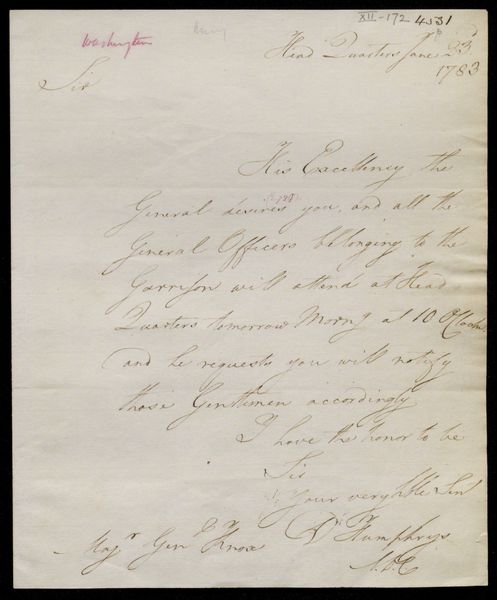 XII-172 4531
Washington
Head Quarters June 23d
1783
Sir
His Excellency the
General desires you, and all the
General Officers belonging to the
Garrison will attend at Head
Quarters tomorrow Morng at 10 OClock
and he requests you will notify
those Gentlemen accordingly
I have the honor to be
Sir
Your very hble Servt
D Humphrys
A.D.C.
Majr Genl Knox